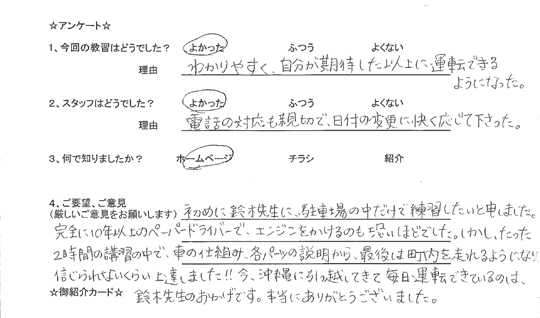 ☆アンケート☆
1、今回の教習はどうでした? よかった ふつう よくない
理由 わかりやすく、自分が期待した以上に、運転できる
ようになった。
2、スタッフはどうでした? よかった ふつう よくない
理由 電話の対応も親切で、日付の変更に快く応じて下さった。
3、何で知りましたか? ホームページ チラシ 紹介
4、ご要望、ご意見
(厳しいご意見をお願いします) 初めに鈴木先生に、駐車場の中だけで練習したいと申しました。
完全に10年以上のペーパードライバーで、エンジンをかけるのも恐いほどでした。しかし、たった
2時間の講習の中で、車の仕組み、各パーツの説明から、最後は町内を走れるようになり
信じられないくらい上達しました!! 今、沖縄に引っ越してきて毎日運転できているのは、
☆御紹介カード☆ 鈴木先生のおかげです。本当にありがとうございました。